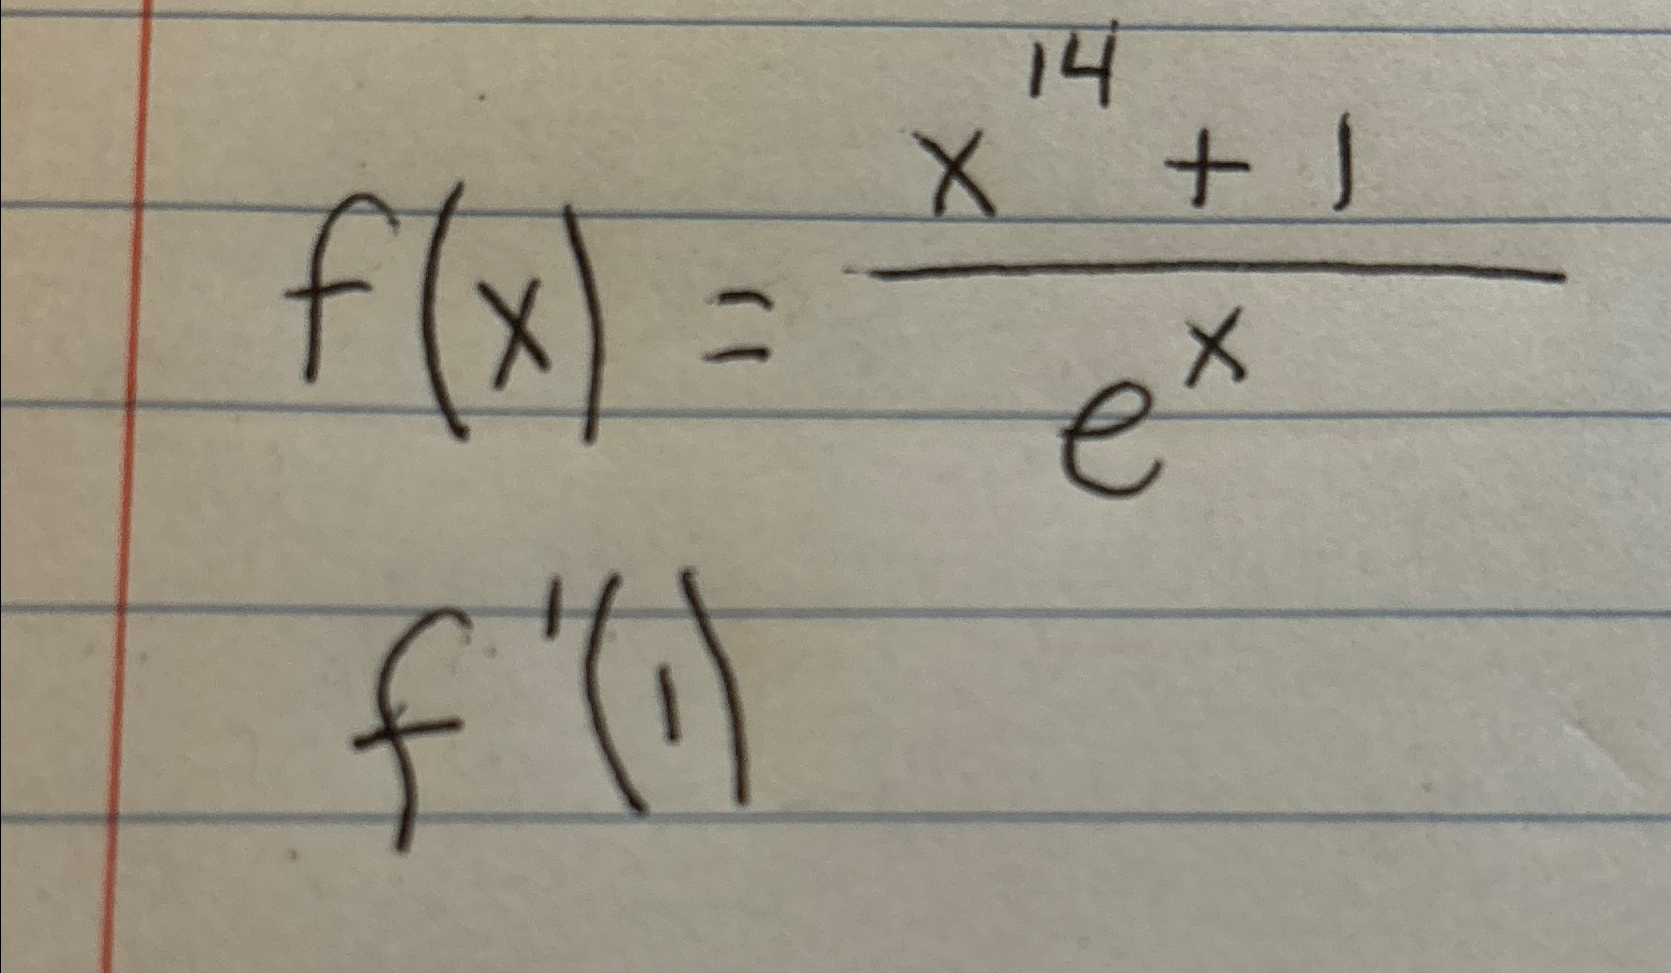 f(x) = \frac{x^{14} + 1}{e^x}
f'(1)